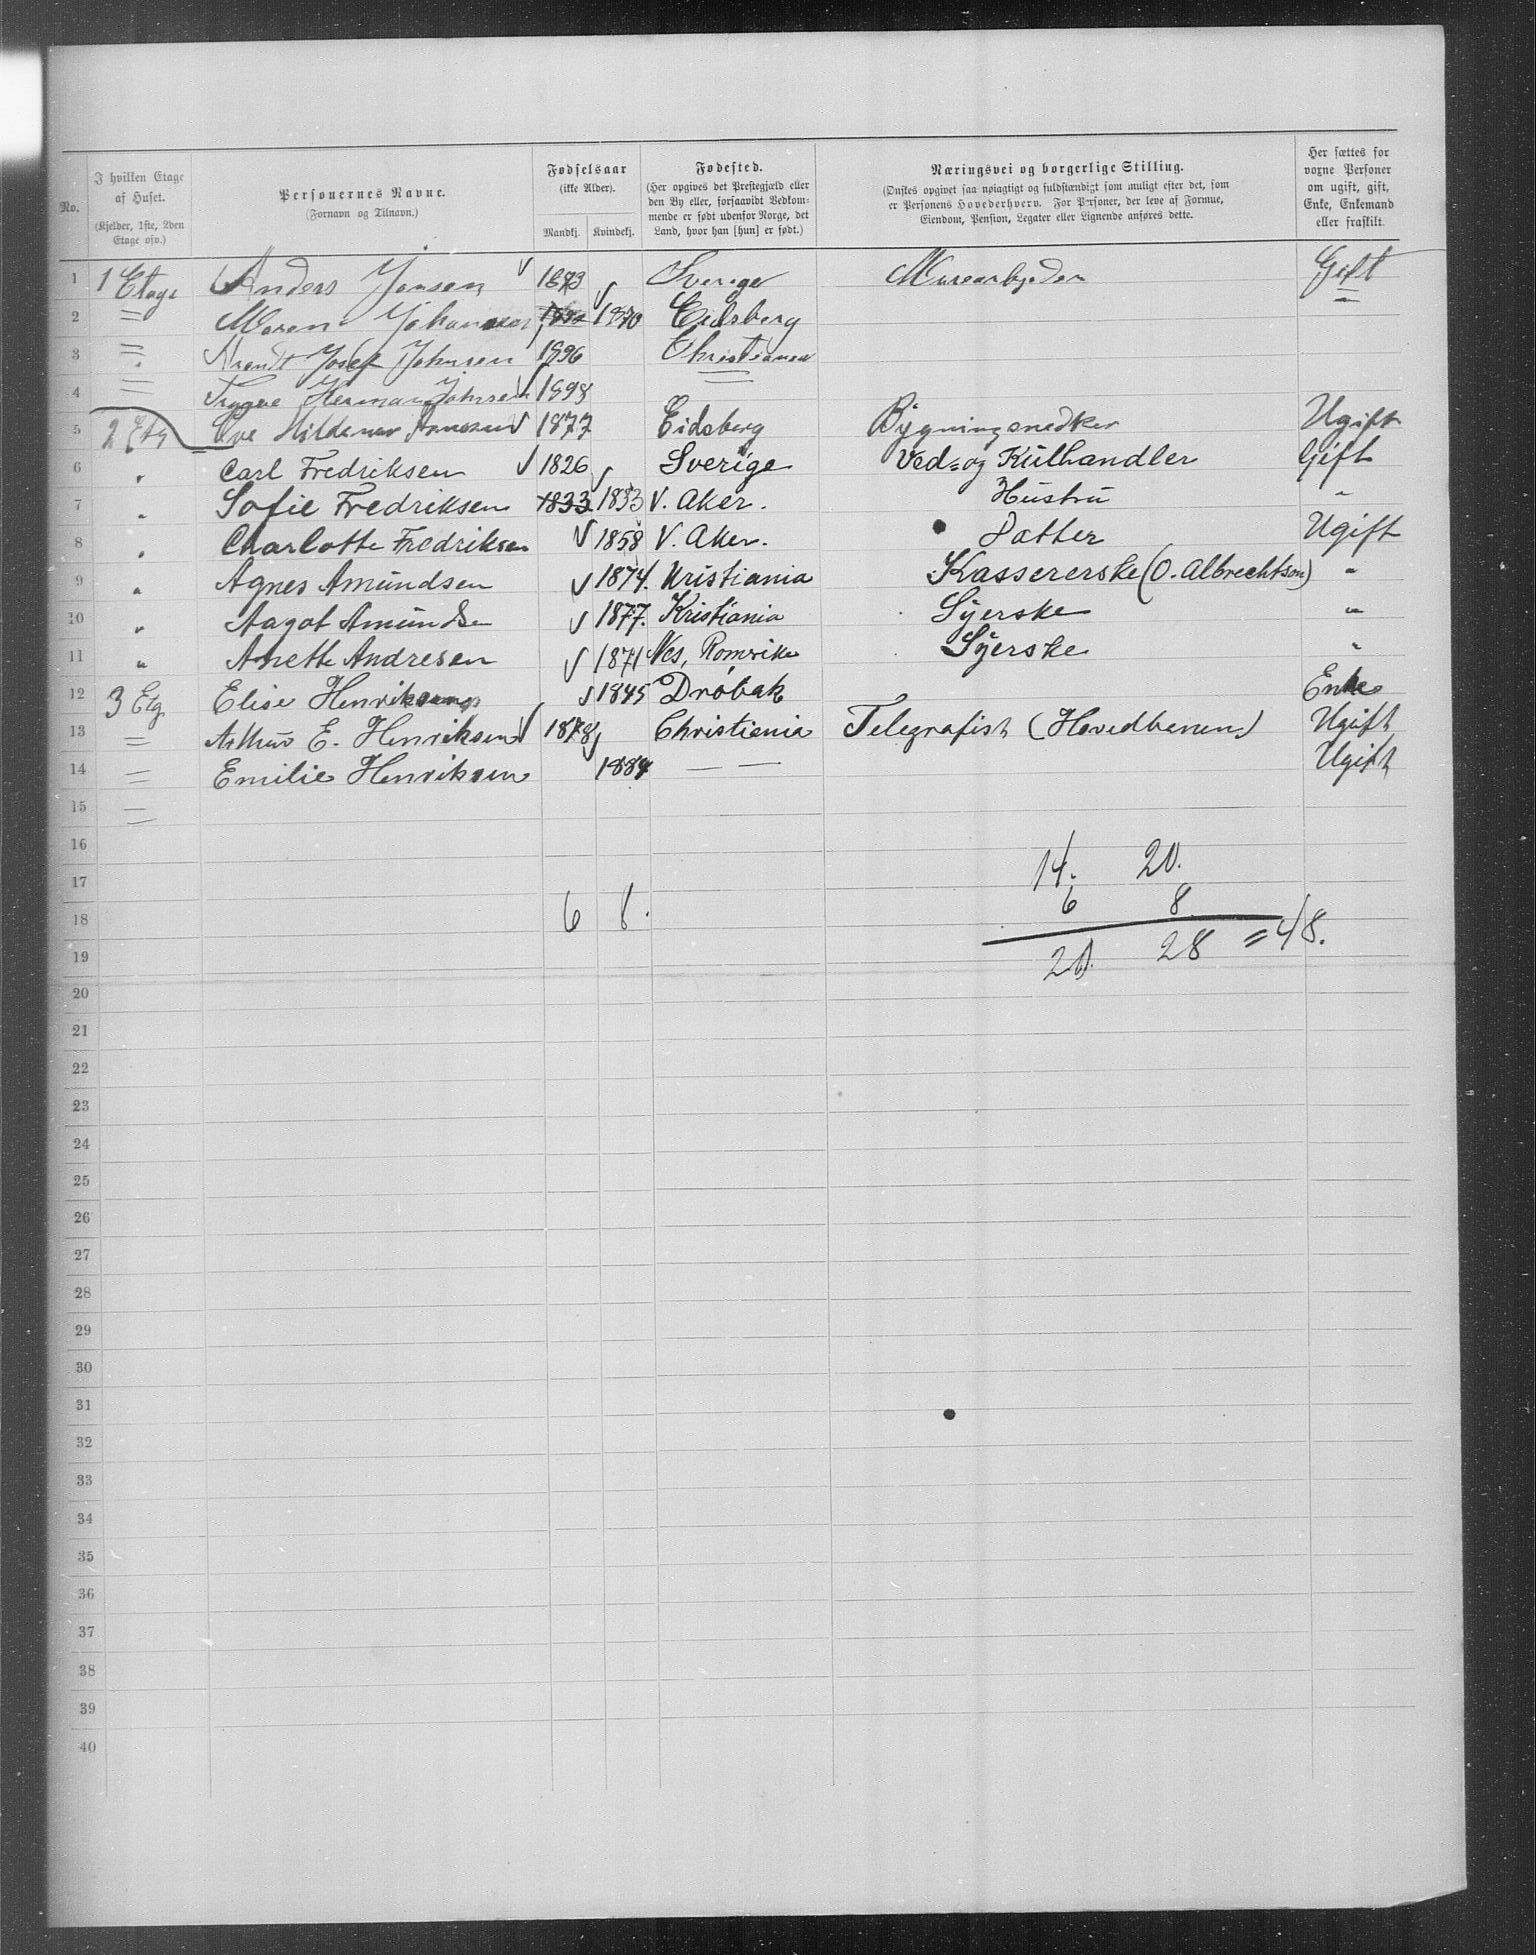 No. | I hvilken Etage af Huset. (Kjelder, 1ste, 2den Etage osv.) | Personernes Navne. (Fornavn og Tilnavn.) | Fødselsaar (ikke Alder). Mandkj. Kvindekj. | Fødested. (Her opgives det Præstegjæld eller den By eller, forsaavidt Vedkommende er født udenfor Norge, det Land, hvor han [hun] er født.) | Næringsvei og borgerlige Stilling. (Ønskes opgivet saa nøiagtigt og fuldstændigt som muligt efter det, som er Personens Hovederhverv. For Personer, der leve af Formue, Eiendom, Pension, Legater eller Lignende anføres dette. | Her sættes for voxne Personer om ugift, gift, Enke, Enkemand eller fraskilt.
1 1 Etage Anders Jonsen √ 1873 Sverige Murearbejder Gift
2 = Maren Johansen √ 1870 Eidsberg =
3 = Arendt Josef Johnsen 1896 Christiania
4 = Trygve Herman Johnsen √ 1898 =
5 2 Etg Ove Hildemar √ 1877 Eidsberg Bygningsnedker Ugift
6 " Carl Fredriksen √ 1826 Sverige Ved- og Kulhandler Gift
7 " Sofie Fredriksen 1833 √ 1833 V. Aker. Hustru "
8 " Charlotte Fredriksen √ 1858 V. Aker. Datter Ugift
9 " Agnes Amundsen √ 1874. Kristiania Kassererske (O. Albrechtson) "
10 " Aagot Amundsen √ 1877. Kristiania Syerske "
11 " Anette Andresen √ 1871 Nes, Romrike Syerske "
12 3 Etg. Elise Henriksen √ 1845 Drøbak Enke
13 = Arthur E. Henriksen √ 1878 Christiania Telegrafist (Hovedbanen) Ugift
14 = Emilie Henriksen √ 1884 — — Ugift
15 =
16
17 14. 20.
18 6 8. 6 8
19 20. 28 = 48.
20
21
22
23
24
25
26
27
28
29
30
31
32
33
34
35
36
37
38
39
40